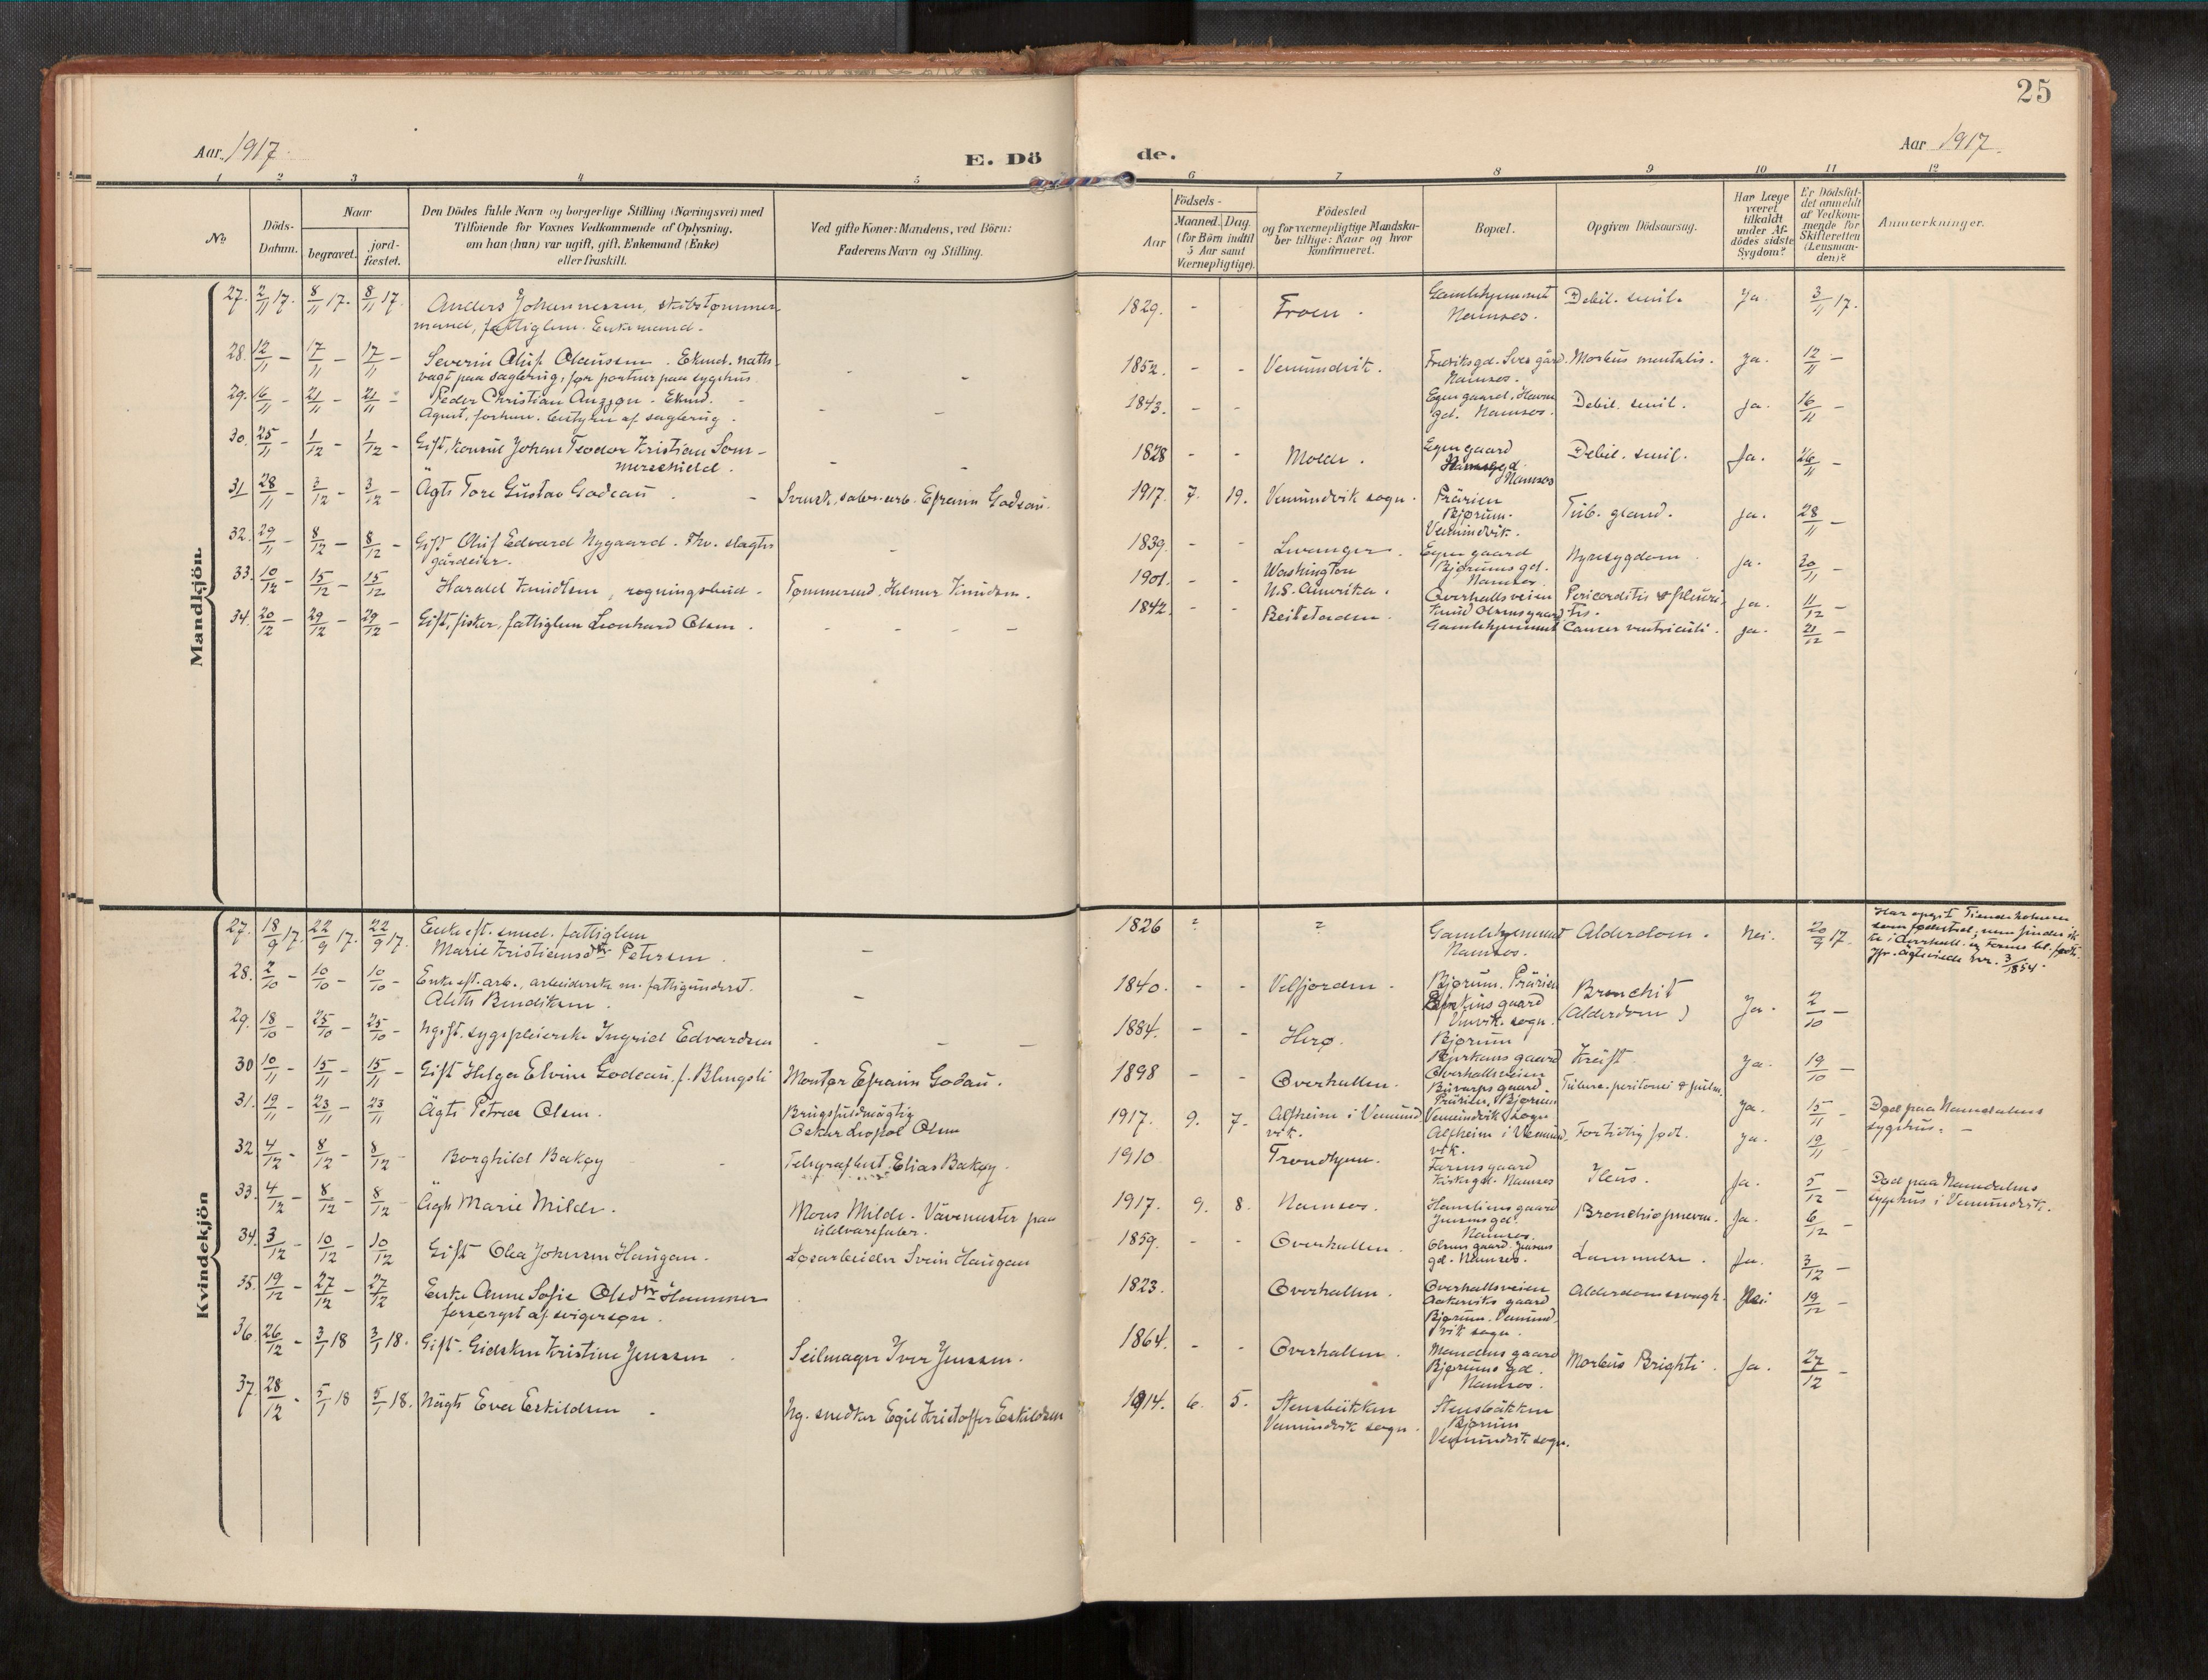 25
Aar 1917.
E. Dö de.
Aar 1917.
1 2 3 4 5 6 7 8 9 10 11 12
No
Döds-Datum.
Naar
begravet.
jord-fæstet.
Den Dödes fulde Navn og borgerlige Stilling (Næringsvei) med
Tilföiende for Voxnes Vedkommende af Oplysning,
om han (hun) var ugift, gift, Enkemand (Enke)
eller fraskilt.
Ved gifte Koner: Mandens, ved Börn:
Faderens Navn og Stilling.
Födsels-
Aar
Maaned. Dag.
(for Börn indtil
5 Aar samt
Værnepligtige).
Födested
og for værnepligtige Mandska-
ber tillige: Naar og hvor
konfirmeret.
Bopæl.
Opgiven Dödsaarsag.
Har Læge
været
tilkaldt
under Af-
dödes sidste
Sygdom?
Er Dödsfal-
det anmeldt
af Vedkom-
mende for
Skifteretten
(Lensman-
den)?
Anmærkninger.
Mandkjön.
27. 2/11 17. 8/11 17. 8/11 17. Anders Johannessen, skibstømmer-
mand, fattiglem. Enkemand.
1829. - - Froen. Gamlehjemmet
Namsos. Debil. senil. Ja. 3/11 17.
28. 12/11 - 17/11 - 17/11 - Severin Oluf Olaussen. Ekmd. natte-
vagt paa sagbrug, før portner paa sygehus.
1852. - - Vemundvik. Fredriksgd. Sves gård.
Namsos. Morbus mentalis. Ja. 12/11 -
29. 16/11 - 21/11 - 21/11 - Peder Christian - Ekmd.
Agent, forhen. bestyrer af sagbrug.
1843. - - Egen gaard, Havne
gd. Namsos. Debil. senil. Ja. 16/11 -
30. 25/11 - 1/12 - 1/12 - Gift, Konsul Johan Teodor Kristian Som-
merschield.
1828 - - Molde. Egen gaard
Namsos Debil. senil. Ja. 26/11 -
31 28/11 - 3/12 - 3/12 - Ägts Tore Gustav Godeau. - Svensk, Efraim Godeau.
1917. 7. 19. Vemundvik sogn. Prärien
Bjørum.
Vemundvik. Tub. gland. Ja. 28/11 -
32. 29/11 - 8/12 - 8/12 - Gift Oluf Edvard Nygaard. Fhv. slagter
gårdeier.
1839. - - Levanger. Egen gaard
Bjørumsgd.
Namsos. Nyresygdom. Ja. 30/11 -
33. 10/12 - 15/12 - 15/12 Harald Knudsen, regningsbud. Tømmermd. Helmer Knudsen.
1901. - - Washington
N.S. Amerika. Overhallsveien
Knud Olsens gaard Pericarditis & pleuri-
tis. Ja. 11/12 -
34. 20/12 - 29/12 - 29/12 - Gift, fisker, fattiglem Leonhard Olsen.
1842. - - Beitstaden. Gamlehjemmet Cancer ventriculi. Ja. 21/12 -
Kvindekjön
27. 18/9 17. 22/9 17. 22/9 17. Enke eft. smed. fattiglem
Marie Kristiansdtr Petersen.
1826 ? ? Gamlehjemmet
Namsos. Alderdom. Nei. 20/9 17.
28. 2/10 - 10/10 - 10/10 - Enke eft. arb., arbeiderske m. fattigunderst.
Aleth Bendiksen.
1840. - - Velfjorden. Bjørum. Prärien
gaard
Vmvik. sogn. Bronchit
(Alderdom) Ja. 2/10 -
29. 18/10 - 25/10 - 25/10 - Ugift. sygepleierske Ingrid Edvardsen
1884. - - Herø. Bjørum
Bjerkans gaard Kräft. Ja. 19/10 -
30 10/11 - 15/11 - 15/11 - Gift Helga Elvine Godeau, f. Blengsli Montør Efraim Godau.
1898 - - Overhallen. Overhallsveien
gaard.
Prärien, Bjørum Tuberc. peritonei & pulm. Ja. 15/11 - Død paa Namdalens
sygehus. -
31. 19/11 - 23/11 - 23/11 Ägts Petra Olsen. Brugsfuldmägtig
Oskar Leopol Olsen
1917. 9. 7. Alfheim i Vemund-
vik. Vemundvik sogn
Alfheim i Vemund-
vik. Fortidlig født. Ja. 19/11
32 4/12 - 8/12 - 8/12 Borghild Bakøy - Telegrafbest. Elias Bakøy.
1910 Trondhjem. gaard
Kirkegd. Namsos Ileus. Ja. 5/12 - Død paa Namdalens
sygehus i Vemundvik.
33. 4/12 - 8/12 - 8/12 Ägts Marie Milde. Mons Milde. Vävemester paa
uldvarefabr.
1917. 9. 8. Namsos. gaard
Namsos. Bronchiopneum. Ja. 6/12 -
34. 3/12 - 10/12 - 10/12 Gift Olea Johnsen Haugan. Løsarbeider Svein Haugan
1859. - - Overhallen. Olsens gaard. Jensens
gd. Namsos. Lammelse. Ja. 3/12 -
35. 19/12 - 27/12 - 27/12 Enke Anne Sofie Olsdtr Hammer
forsørget af svigersøn.
1823. Overhallen. Overhallsveien
Aakerviks gaard
Bjørum. Vemund-
vik sogn. Alderdomssvagh. Nei 19/12 -
36. 26/12 - 3/1 18 3/1 18. Gift. Gidsken Kristine Jenssen. Seilmager Iver Jenssen.
1864. - - Overhallen. Mandens gaard
Bjørums gd.
Namsos. Morbus Brighti. Ja. 27/12 -
37. 28/12 - 5/1 18 5/1 18. Uägts Eva Eskildsen. Ug. snedker Egil Kristoffer Eskildsen
1914. 6. 5. Stensbäkken
Vemundvik sogn. Stensbäkken
Bjørum
Vemundvik sogn.